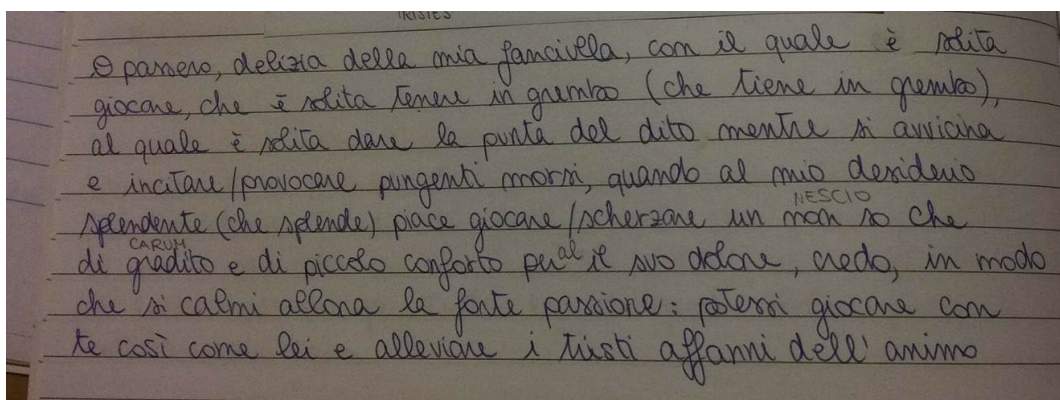 TRISTES
O passero, delizia della mia fanciulla, con il quale è solita
giocare, che è solita tenere in grembo (che tiene in grembo),
al quale è solita dare la punta del dito mentre si avvicina
e incitare/provocare pungenti morsi, quando al mio desiderio
NESCIO
splendente (che splende) piace giocare/scherzare un non so che
CARUM
di gradito e di piccolo conforto per al il suo dolore, credo, in modo
che si calmi allora la forte passione: potessi giocare con
te così come lei e alleviare i tristi affanni dell'animo